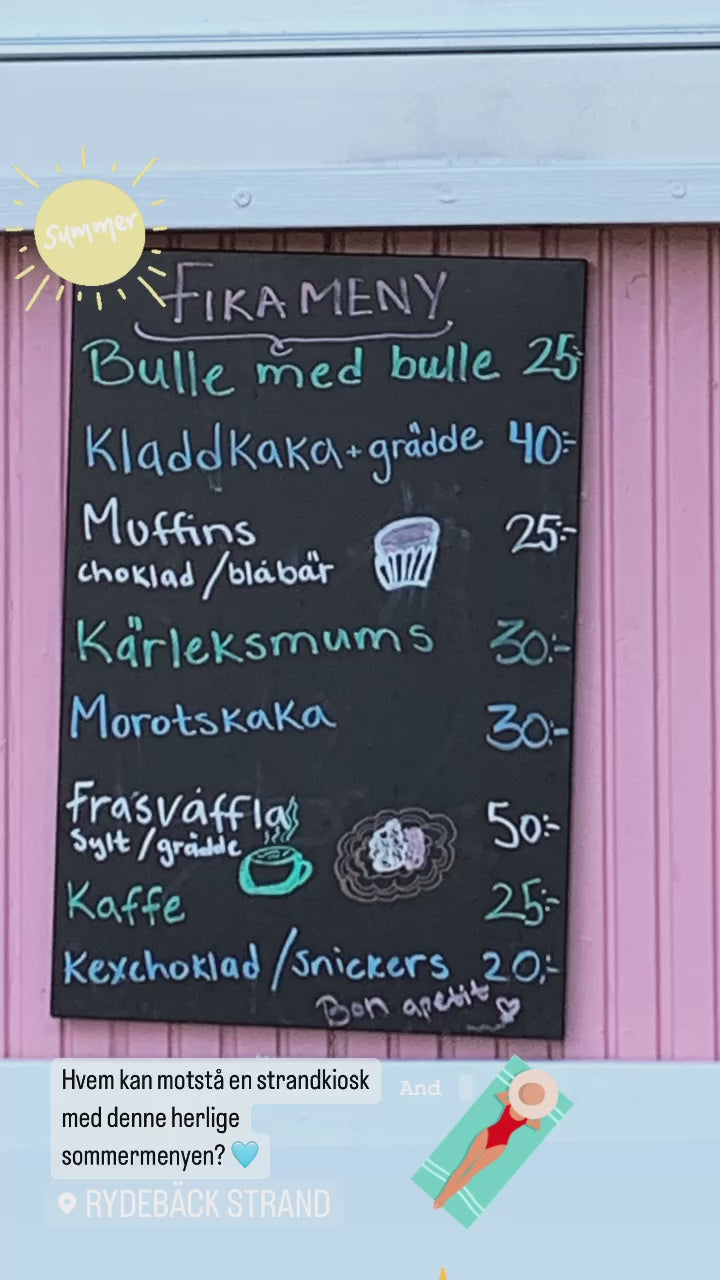 Summer
FIKA MENY
Bulle med bulle 25:-
Kladdkaka + grädde 40:-
Muffins 25:-
choklad / blåbär
Kärleksmums 30:-
Morotskaka 30:-
Frasvåffla 50:-
Sylt / grädde
Kaffe 25:-
Kexchoklad / Snickers 20:-
Bon apetit
Hvem kan motstå en strandkiosk
med denne herlige
sommermenyen? 🩵
And
RYDEBÄCK STRAND